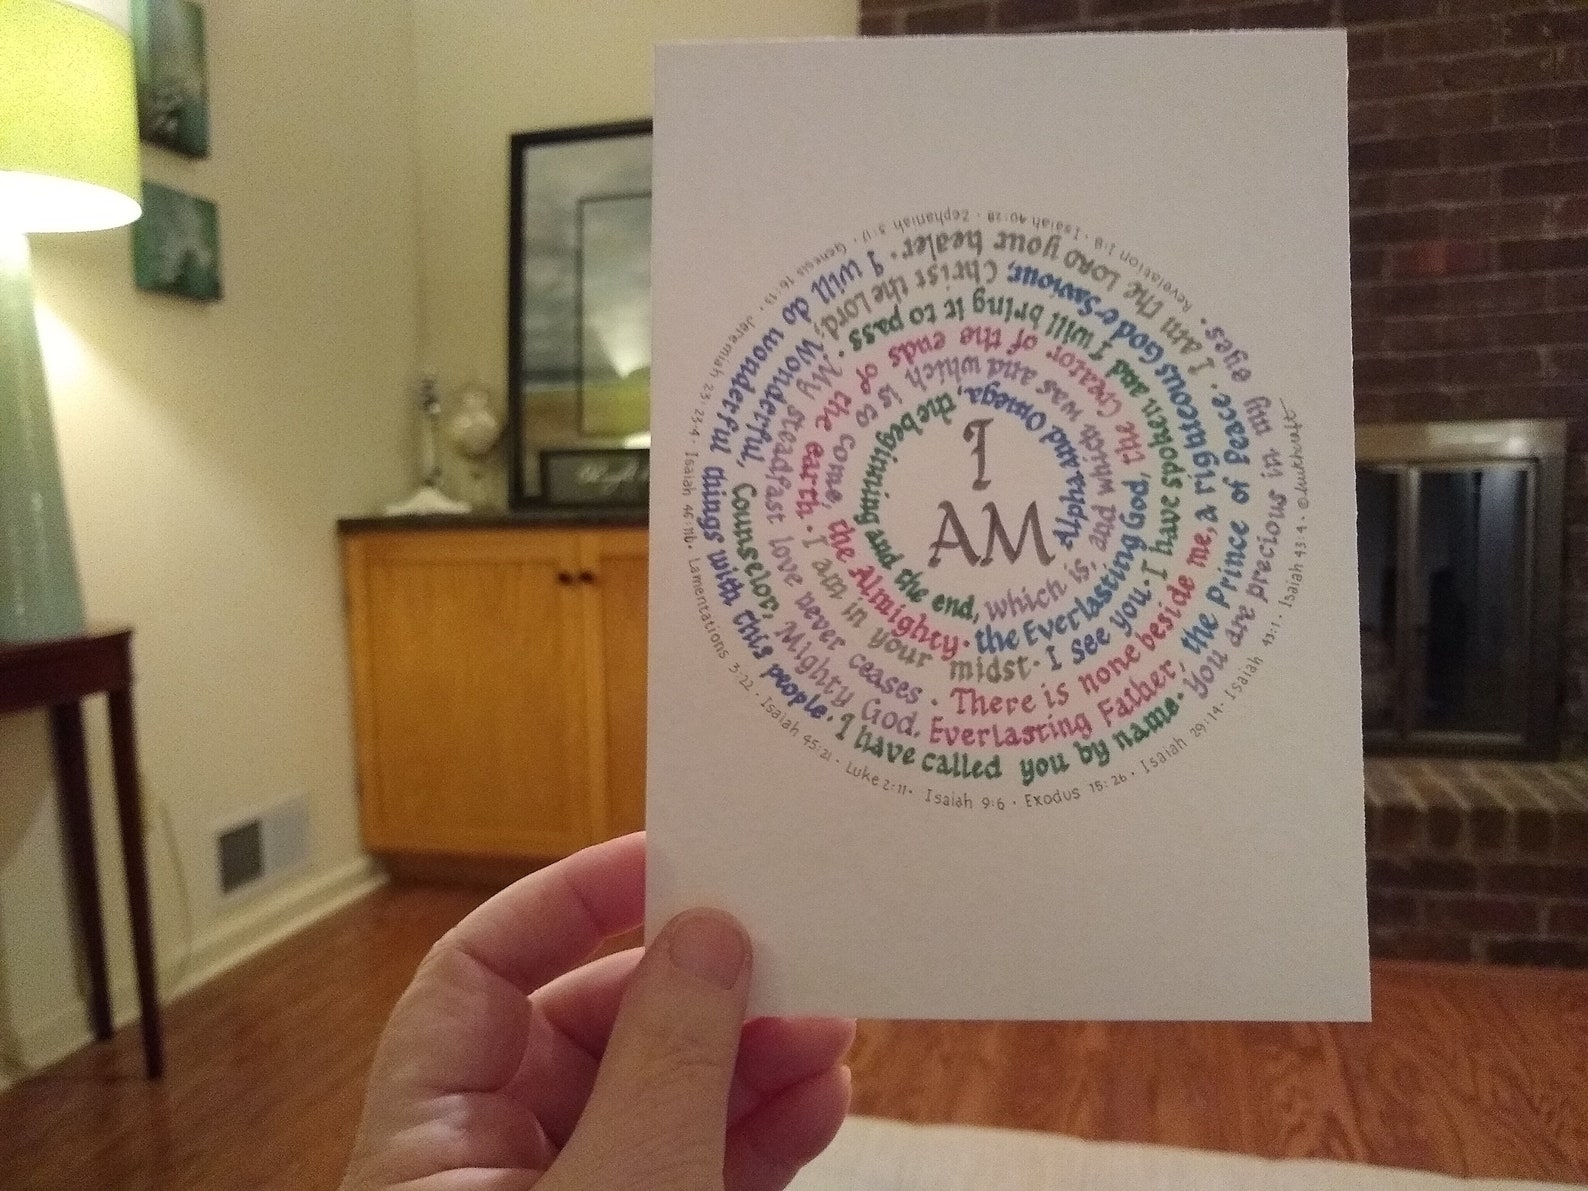 I
AM
Alpha and Omega, the beginning and the end, which is, and which was and which is to come, the Almighty · the Everlasting God, the Creator of the ends of the earth · I am in your midst · I see you · I have spoken and I will bring it to pass · My steadfast love never ceases · There is none beside me, a righteous God & Saviour; Christ the Lord; Wonderful, Counselor, Mighty God, Everlasting Father, the Prince of Peace · I am the LORD your healer · I will do wonderful things with this people · I have called you by name · You are precious in my eyes ·
Revelation 1:8 · Isaiah 40:28 · Zephaniah 3:17 · Genesis 16:13 · Jeremiah 23:23-4 · Isaiah 46:11b · Lamentations 3:22 · Isaiah 45:21 · Luke 2:11 · Isaiah 9:6 · Exodus 15:26 · Isaiah 29:14 · Isaiah 43:1 · Isaiah 43:4 · ©